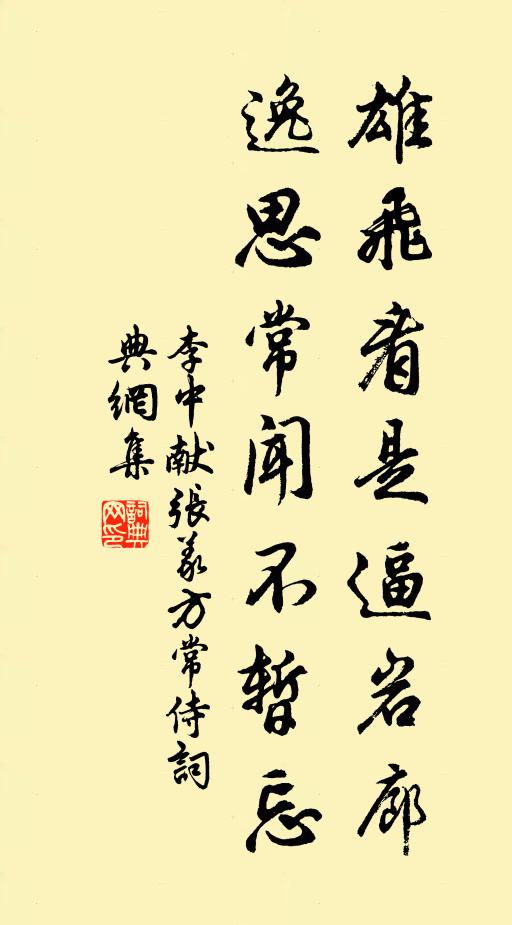 雄飛看是逼岩廊
逸思常聞不暫忘
李中献張义方常侍詞
典網集
詞典网印